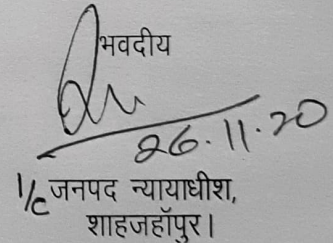 भवदीय
26.11.20
I/c जनपद न्यायाधीश,
शाहजहाँपुर।